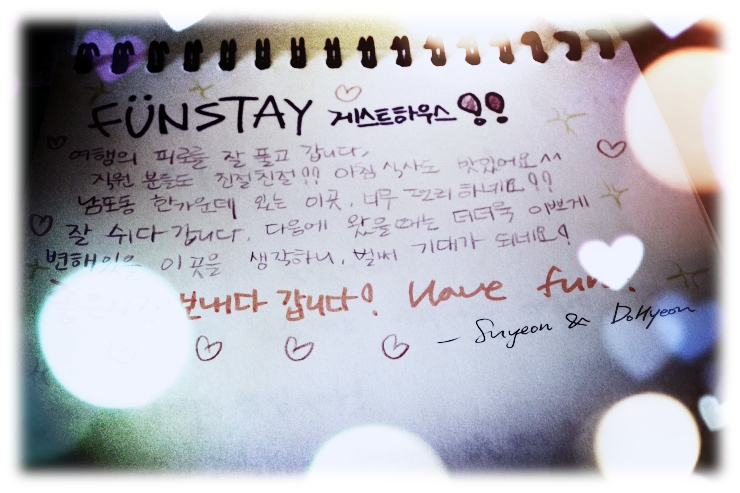 FÜNSTAY 게스트하우스!!
여행의 피로를 잘 풀고 갑니다.
직원 분들도 친절친절!! 아침 식사도 맛있어요^^
남포동 한가운데 있는 이곳, 너무 편리하네요!!
잘 쉬다 갑니다. 다음에 왔을때는 더더욱 이쁘게
변해있을 이곳을 생각하니, 벌써 기대가 되네요!
보내다 갑니다! Have fun.
— Suyeon & DoHyeon